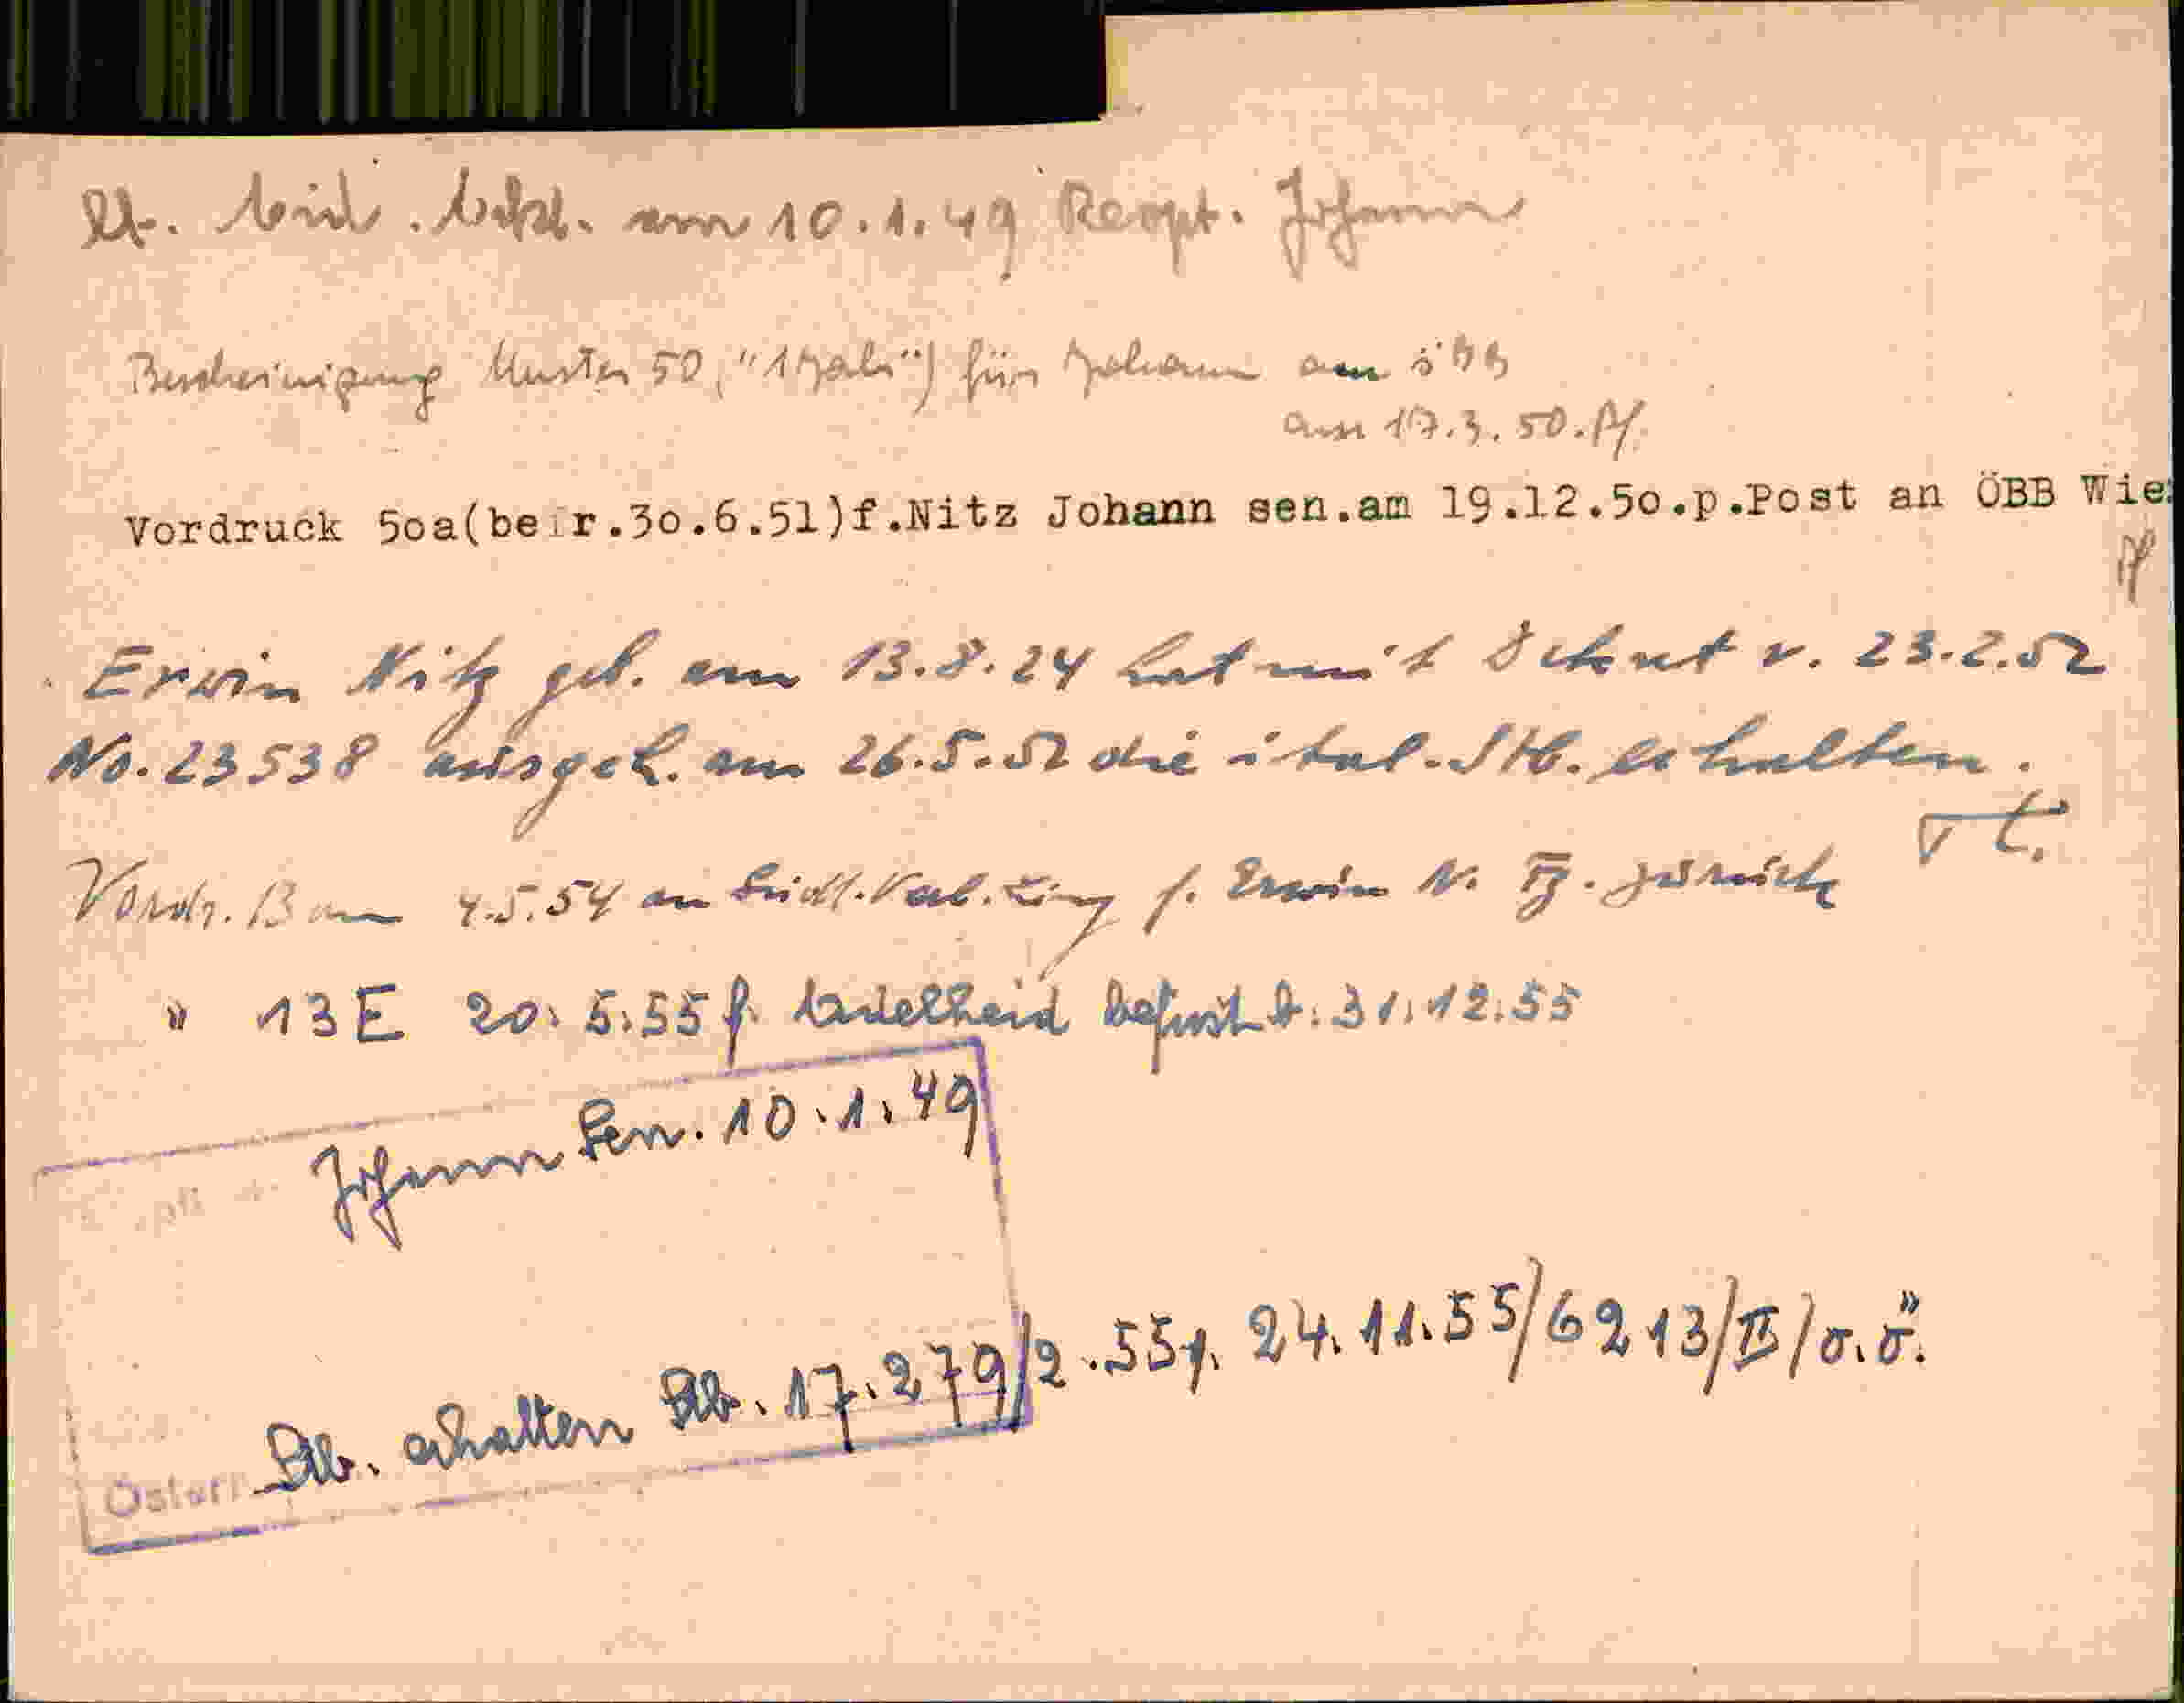 am 10.1.49 Rempt. Johann
Bescheinigung Muster 50 für Johann am
am 17.3.50. Pf.
Vordruck 50a(be r.30.6.51)f.Nitz Johann sen.am 19.12.50.p.Post an ÖBB Wie
Pf
Erwin Nitz geb. am 13.8.24 hat mit Dekret v. 23.2.52
No. 23538 ausgeh. am 26.5.52 die ital. Stb. erhalten.
Vordr. B am 4.5.54 an Südt. Verb. f. Erwin N. zurück
" 13E 20.5.55 f. Adelheid befrist. b. 31.12.55
Johann Sen. 10.1.49
Stb. erhalten Stb. 17.279/2.55 f. 24.11.55/6213/II/o.ö.
Österr